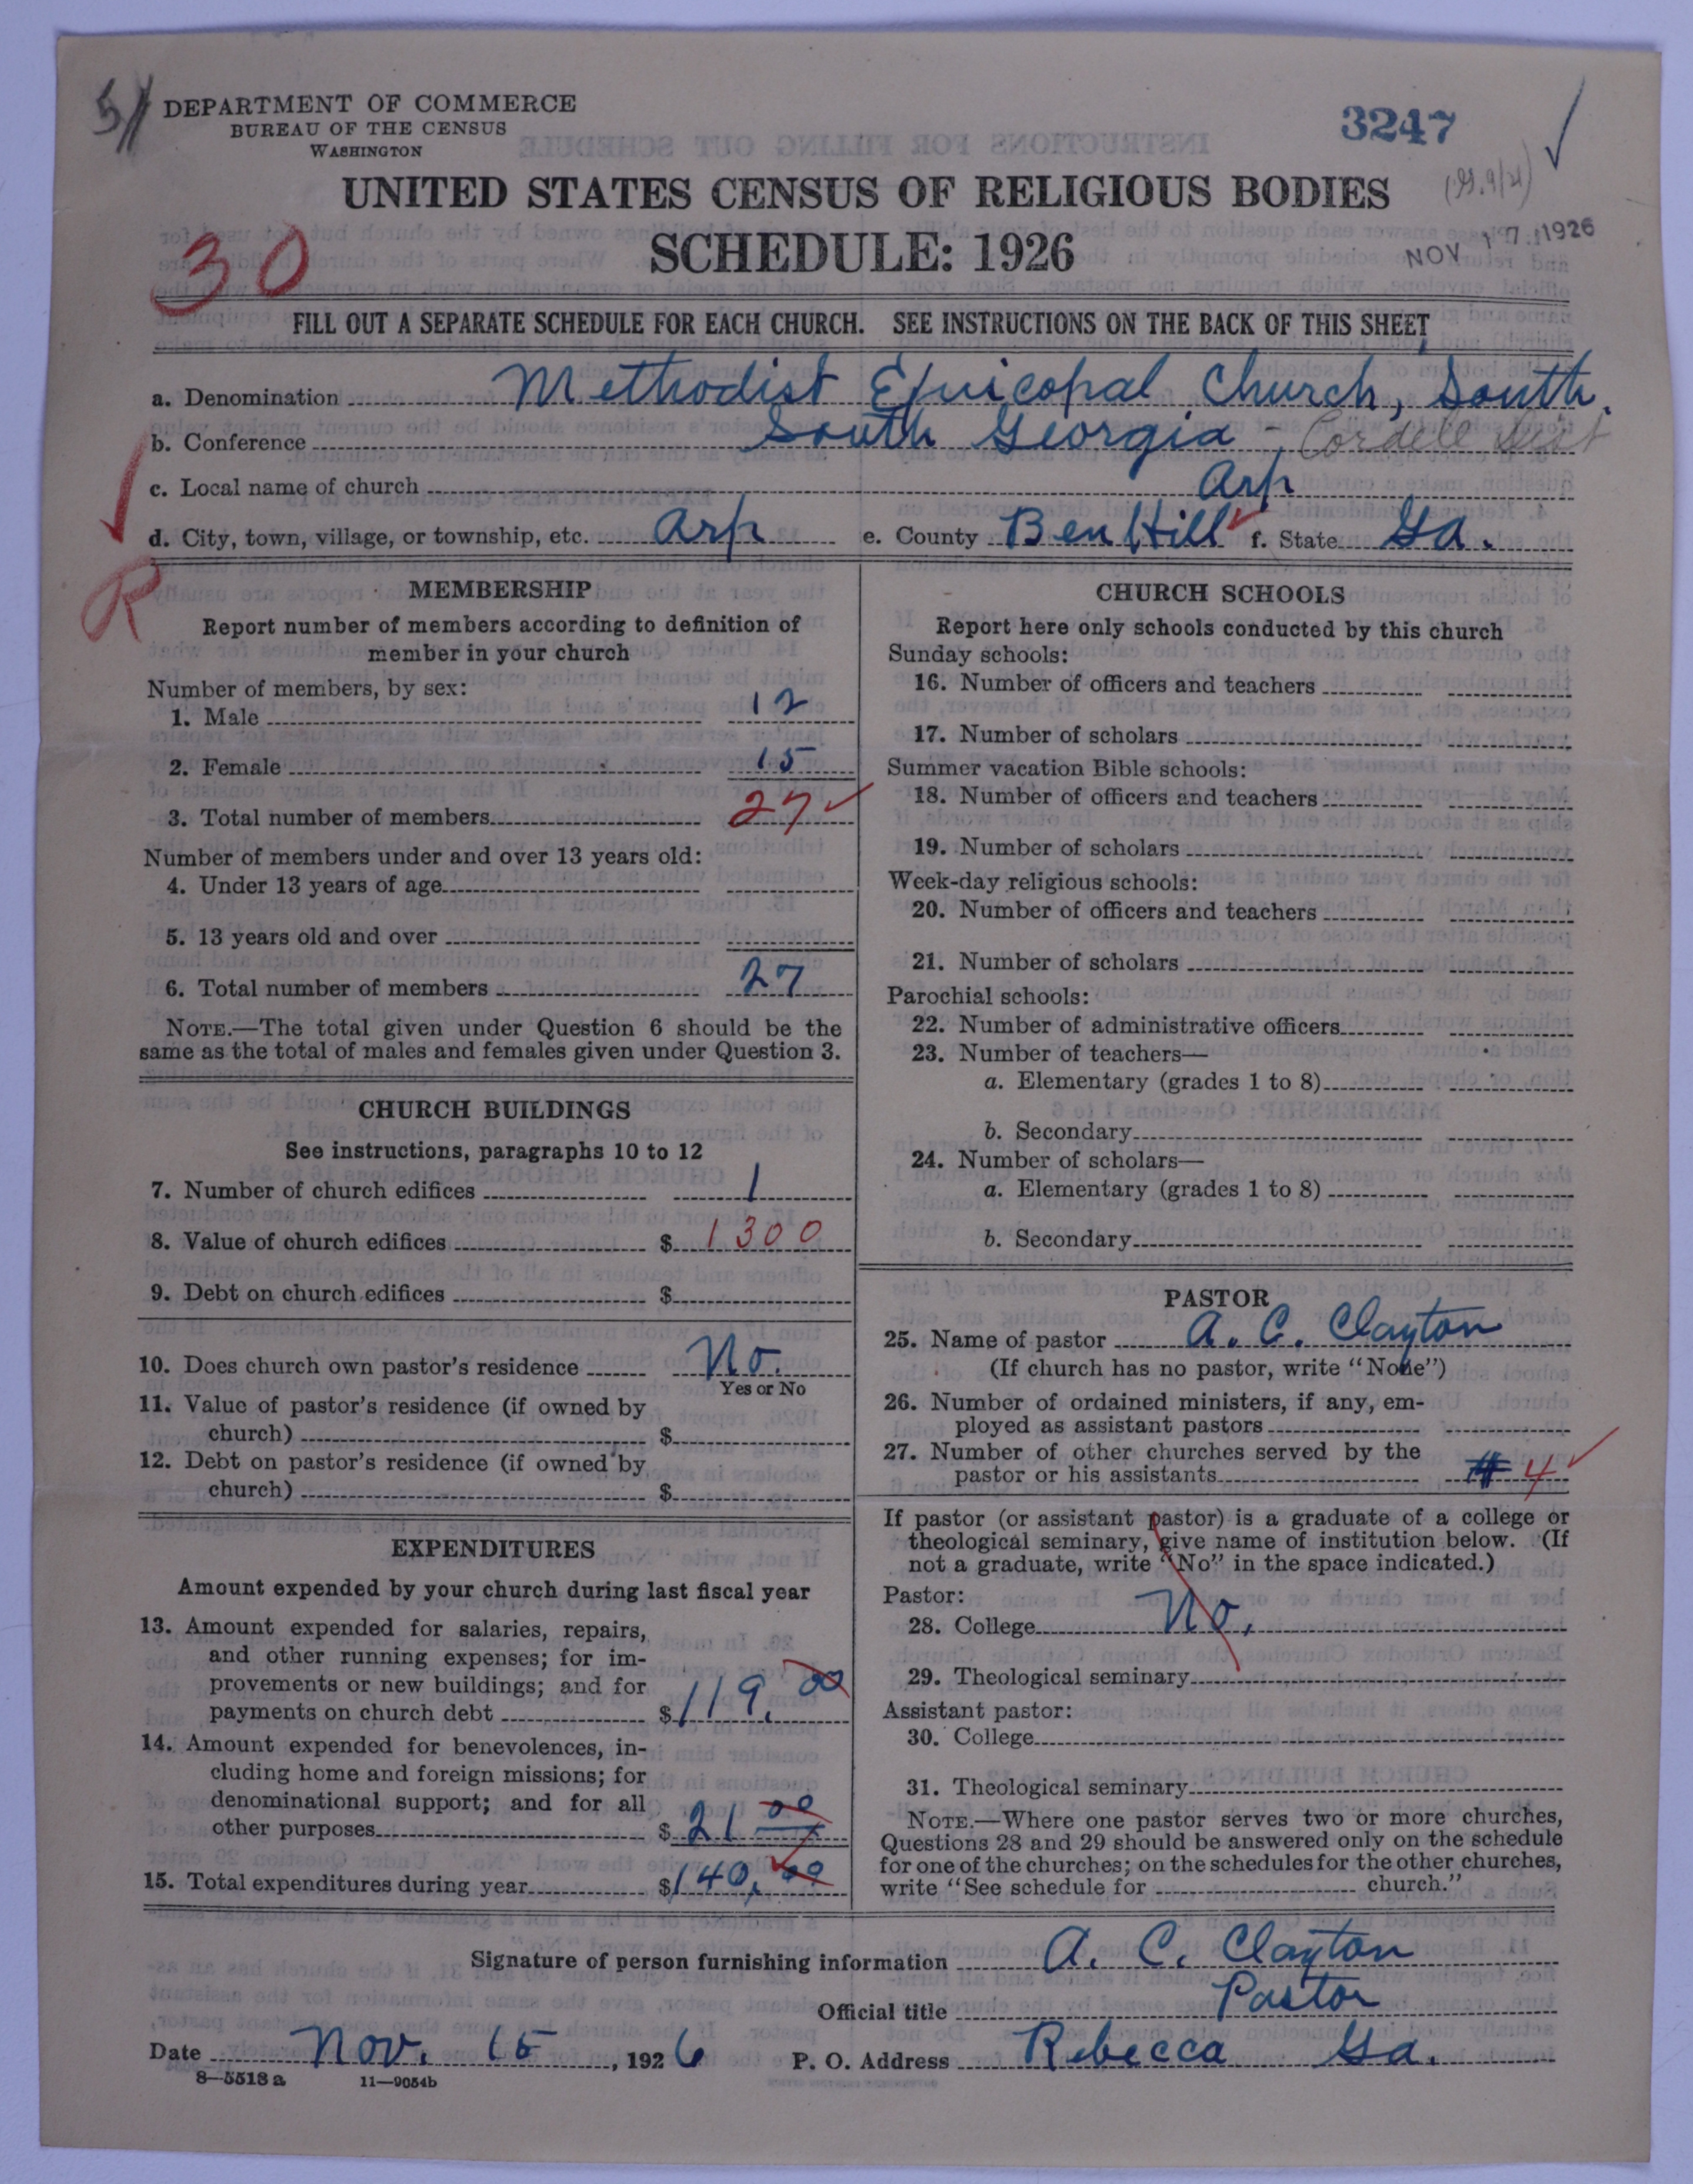 5
DEPARTMENT OF COMMERCE
BUREAU OF THE CENSUS
WASHINGTON
3247
UNITED STATES CENSUS OF RELIGIOUS BODIES
SCHEDULE: 1926
NOV 17 1926
30
FILL OUT A SEPARATE SCHEDULE FOR EACH CHURCH. SEE INSTRUCTIONS ON THE BACK OF THIS SHEET
a. Denomination Methodist Episcopal Church, South.
b. Conference South Georgia - Cordele Dist
c. Local name of church Arp
d. City, town, village, or township, etc. Arp e. County Ben Hill f. State Ga.
R
MEMBERSHIP
Report number of members according to definition of
member in your church
Number of members, by sex:
1. Male 12
2. Female 15
3. Total number of members 27
Number of members under and over 13 years old:
4. Under 13 years of age
5. 13 years old and over
6. Total number of members 27
NOTE.—The total given under Question 6 should be the
same as the total of males and females given under Question 3.
CHURCH BUILDINGS
See instructions, paragraphs 10 to 12
7. Number of church edifices 1
8. Value of church edifices $ 1300
9. Debt on church edifices $
10. Does church own pastor's residence No.
Yes or No
11. Value of pastor's residence (if owned by
church) $
12. Debt on pastor's residence (if owned by
church) $
EXPENDITURES
Amount expended by your church during last fiscal year
13. Amount expended for salaries, repairs,
and other running expenses; for im-
provements or new buildings; and for
payments on church debt $ 119.00
14. Amount expended for benevolences, in-
cluding home and foreign missions; for
denominational support; and for all
other purposes $ 21 00
15. Total expenditures during year $ 140.00
CHURCH SCHOOLS
Report here only schools conducted by this church
Sunday schools:
16. Number of officers and teachers
17. Number of scholars
Summer vacation Bible schools:
18. Number of officers and teachers
19. Number of scholars
Week-day religious schools:
20. Number of officers and teachers
21. Number of scholars
Parochial schools:
22. Number of administrative officers
23. Number of teachers—
a. Elementary (grades 1 to 8)
b. Secondary
24. Number of scholars—
a. Elementary (grades 1 to 8)
b. Secondary
PASTOR
25. Name of pastor A. C. Clayton
(If church has no pastor, write "None")
26. Number of ordained ministers, if any, em-
ployed as assistant pastors
27. Number of other churches served by the
pastor or his assistants 4
If pastor (or assistant pastor) is a graduate of a college or
theological seminary, give name of institution below. (If
not a graduate, write "No" in the space indicated.)
Pastor:
28. College No.
29. Theological seminary
Assistant pastor:
30. College
31. Theological seminary
NOTE.—Where one pastor serves two or more churches,
Questions 28 and 29 should be answered only on the schedule
for one of the churches; on the schedules for the other churches,
write "See schedule for church."
Signature of person furnishing information A. C. Clayton
Official title Pastor
Date Nov. 15, 1926 P. O. Address Rebecca Ga.
8—5518 a 11—9054b